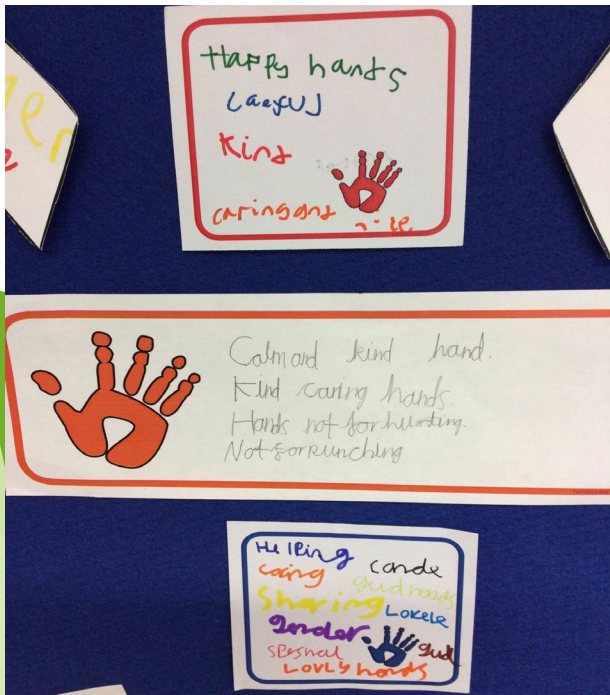 Happy hands
Kind
caring and
Calm and kind hand.
Kind caring hands.
Hands not for hurting.
Not for punching
HelPing
conde
caring
gud hands
Sharing
Lokele
gud
speshal
LOVLY hands